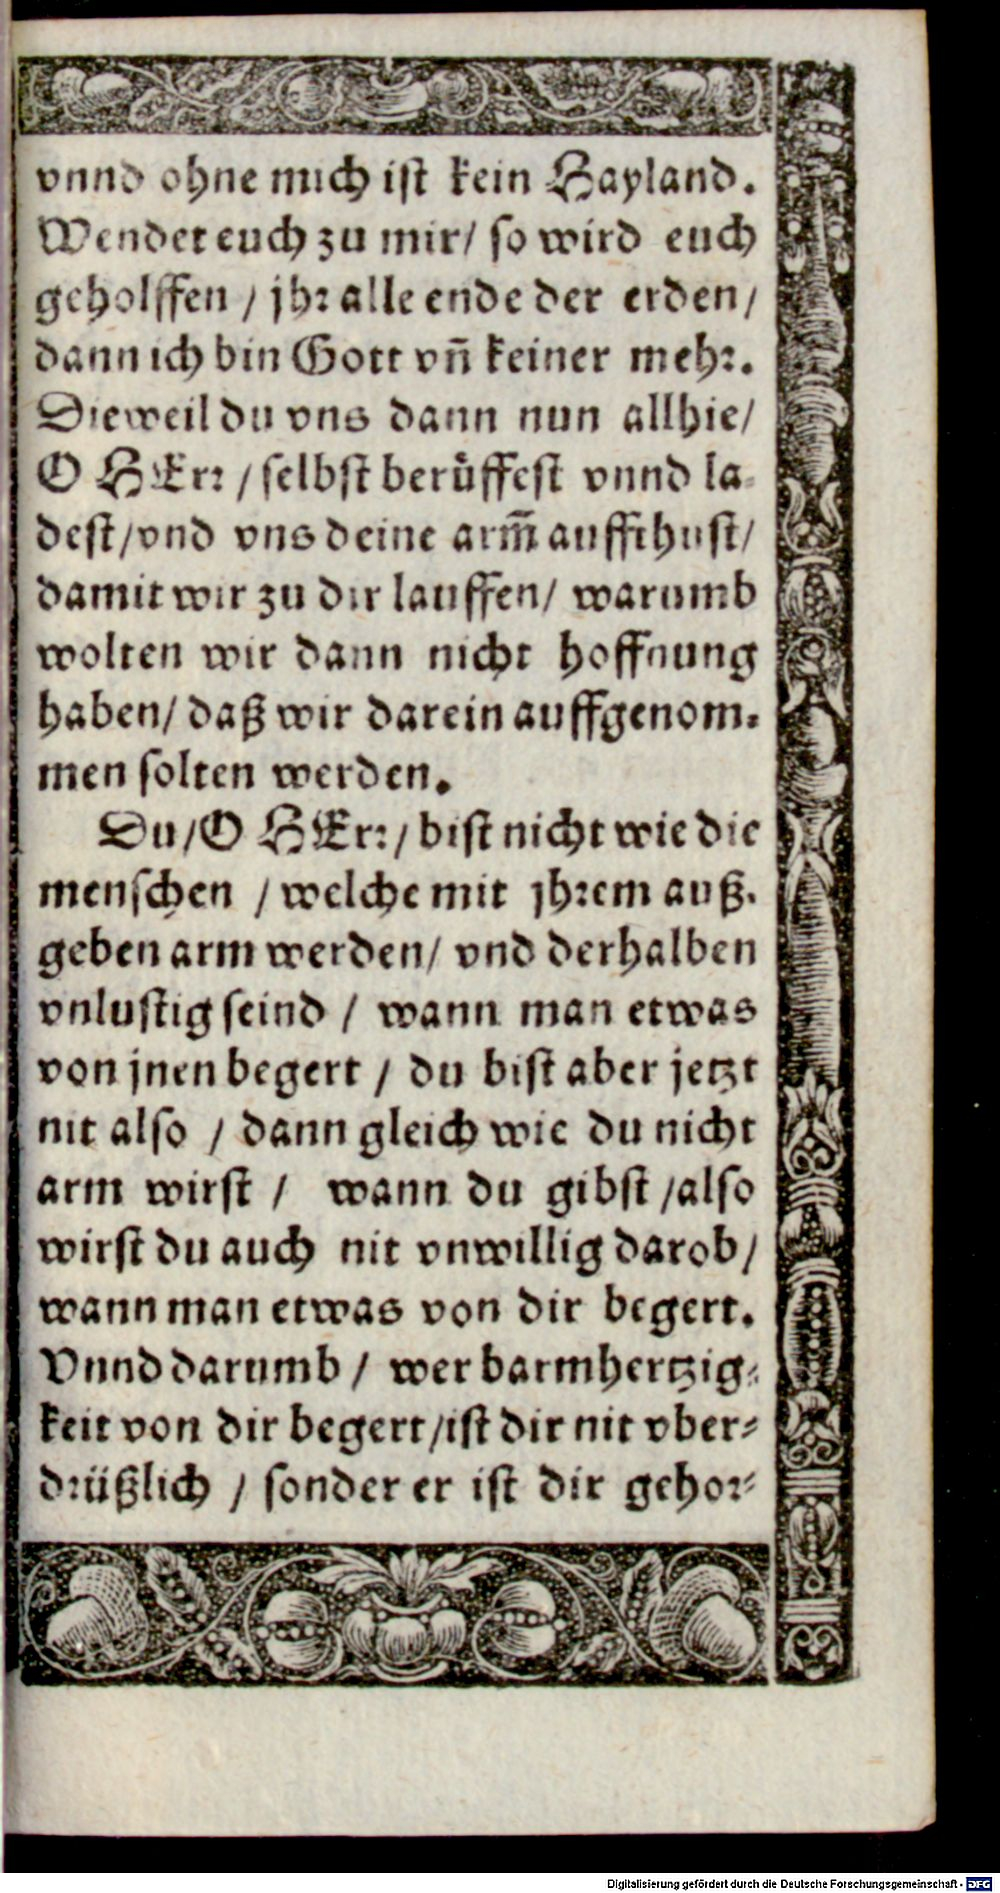 vnnd ohne mich ist kein Hayland.
Wendet euch zu mir/ so wird euch
geholffen / jhr alle ende der erden/
dann ich bin Gott vñ keiner mehr.
Dieweil du vns dann nun allhie/
O HErr / selbst berůffest vnnd la-
dest/vnd vns deine arm̃ auffthust/
damit wir zu dir lauffen/ warumb
wolten wir dann nicht hoffnung
haben/ daß wir darein auffgenom-
men solten werden.
Du/O HErr/ bist nicht wie die
menschen / welche mit jhrem auß-
geben arm werden/ vnd derhalben
vnlustig seind / wann man etwas
von jnen begert / du bist aber jetzt
nit also / dann gleich wie du nicht
arm wirst / wann du gibst /also
wirst du auch nit vnwillig darob/
wann man etwas von dir begert.
Vnnd darumb / wer barmhertzig-
keit von dir begert/ist dir nit vber-
drüßlich / sonder er ist dir gehor-
Digitalisierung gefördert durch die Deutsche Forschungsgemeinschaft - DFG